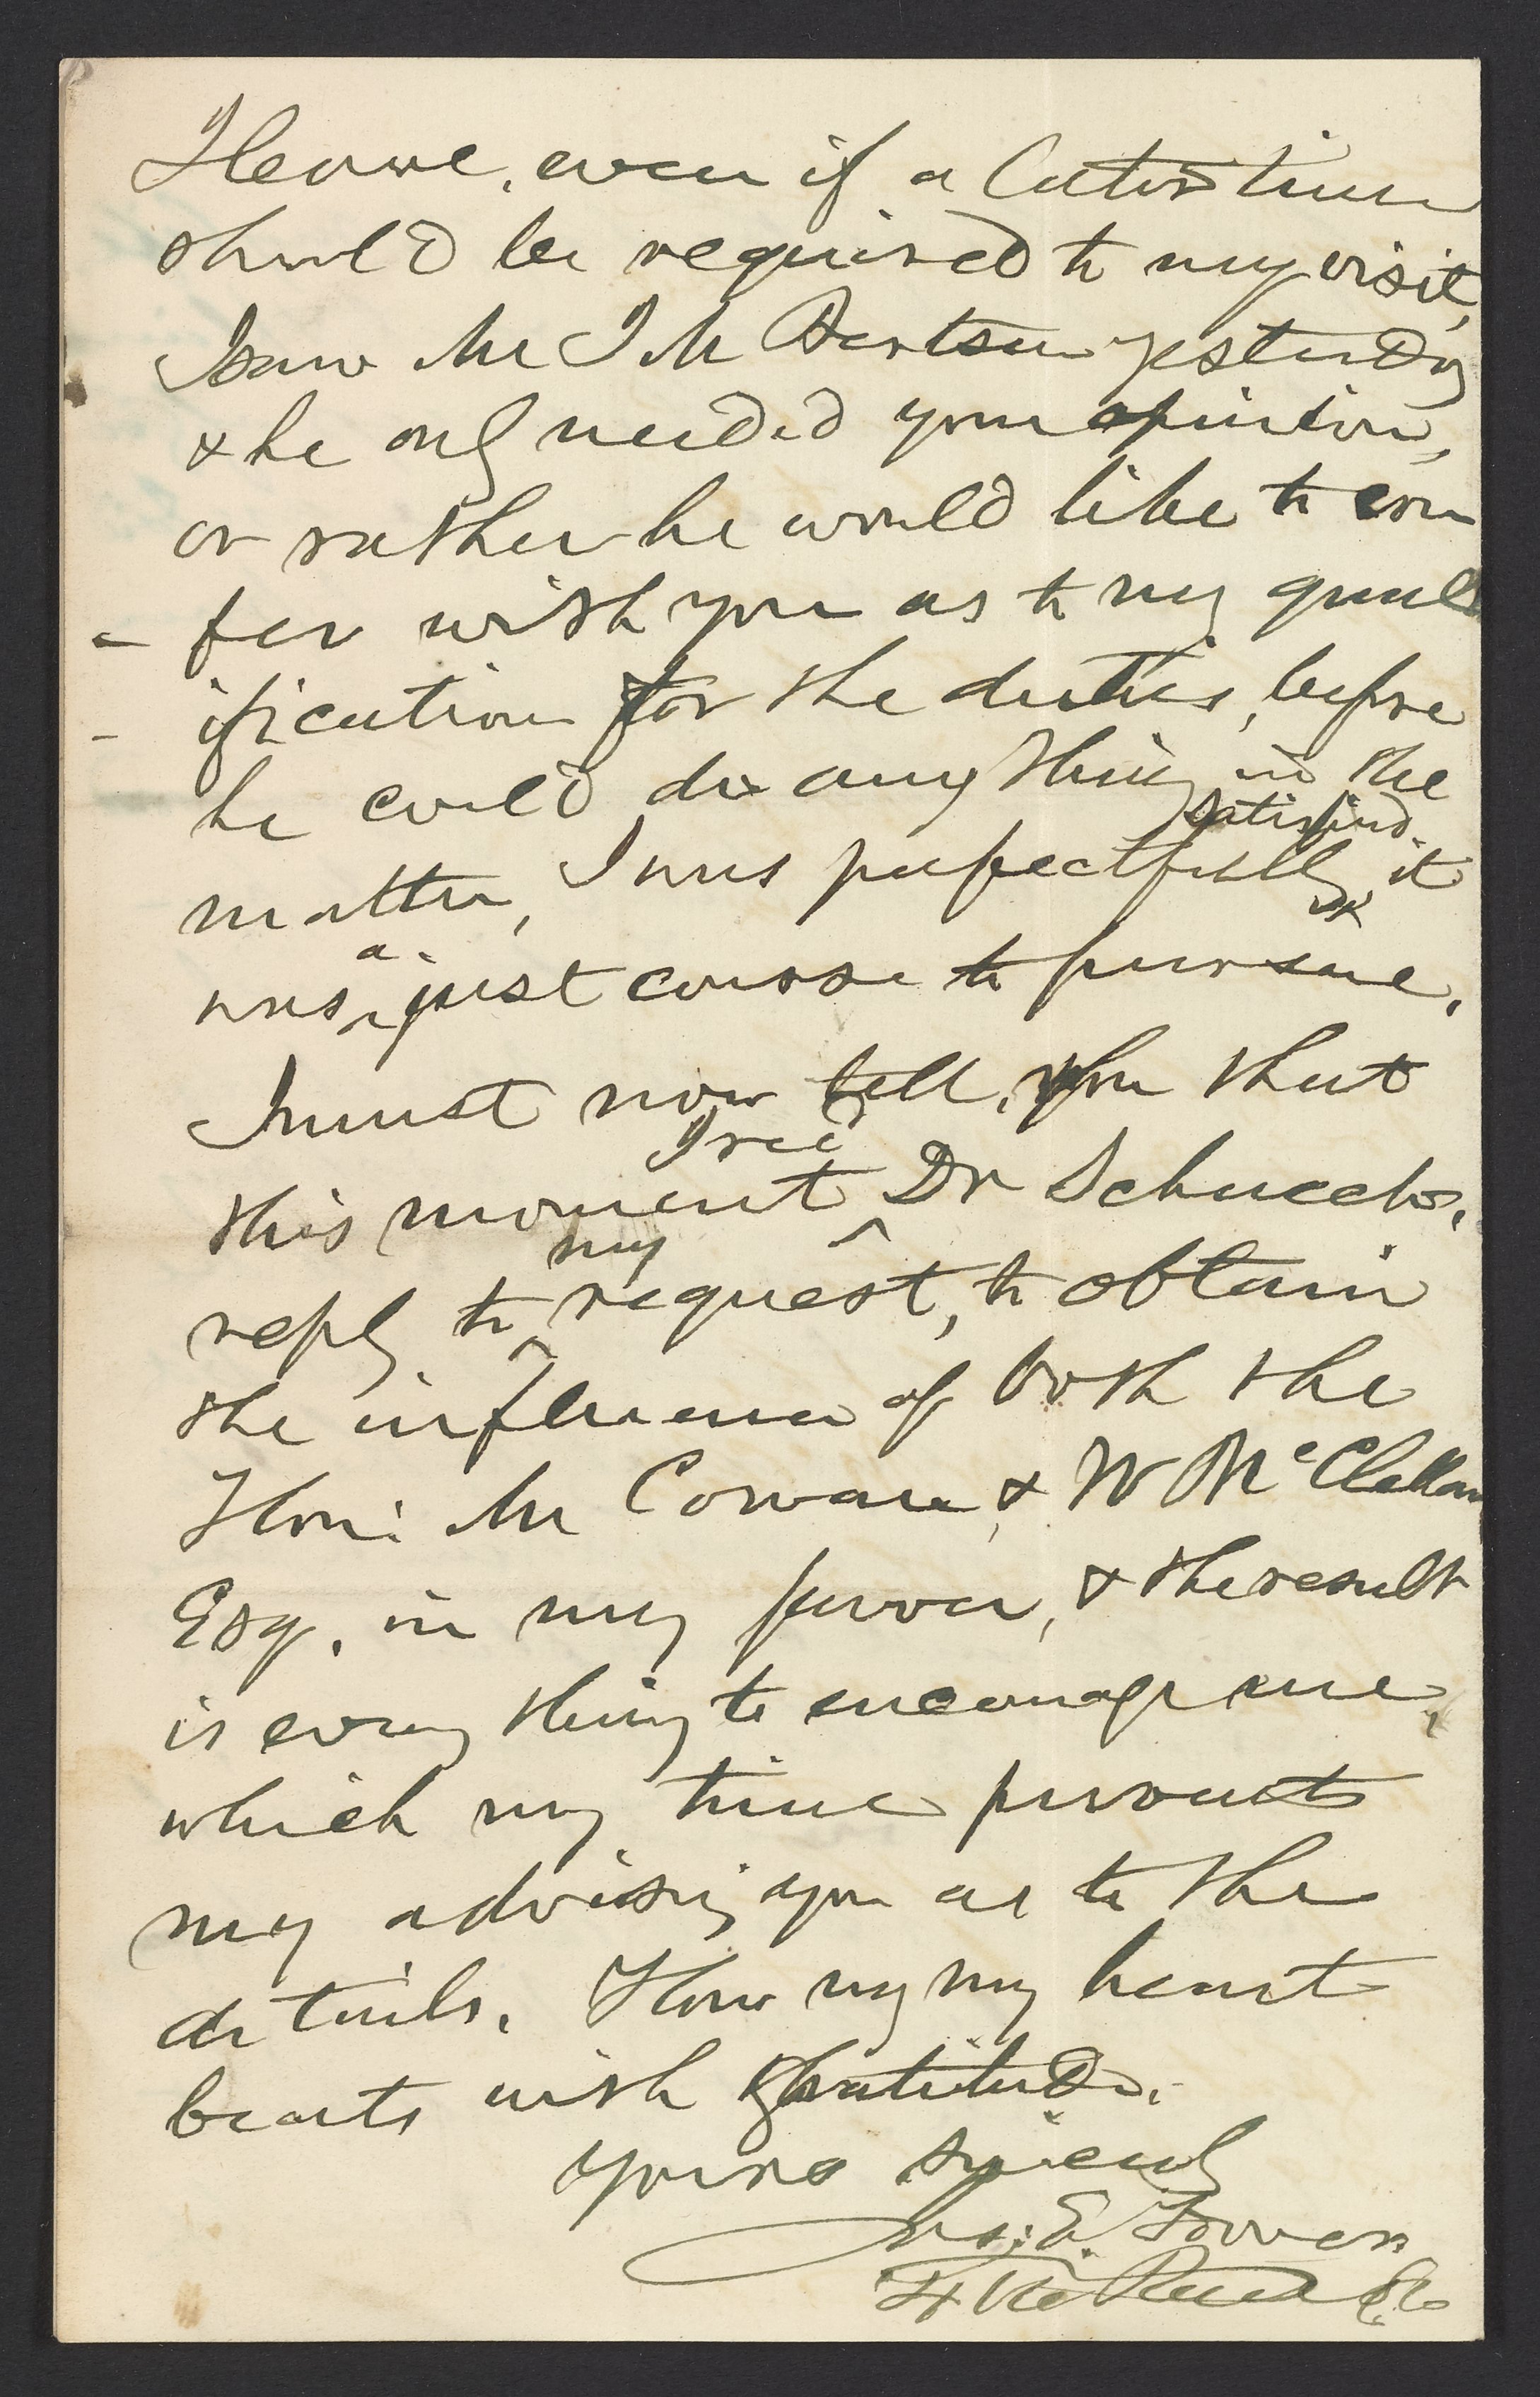 I leave, even if a later time
should be required to my visit,
I saw Mr J M Bartson yesterday
& he only needed your opinion,
or rather he would like to con
- fer with you as to my quali
- ification for the duties, before
he could do anything in the
satisfied
matter, I was perfectfully it
a
was just course to pursue.
I must now tell, you that
I rec'd
this moment Dr
my
reply to request, to obtain
the influence of both the
Hon: Mr Cowan, & W McClellan
Esq. in my favor, & the result
is every thing to encourage me,
which my time prevents
my advising you as to the
details. How my my heart
beats with gratitude.
Yours
E.